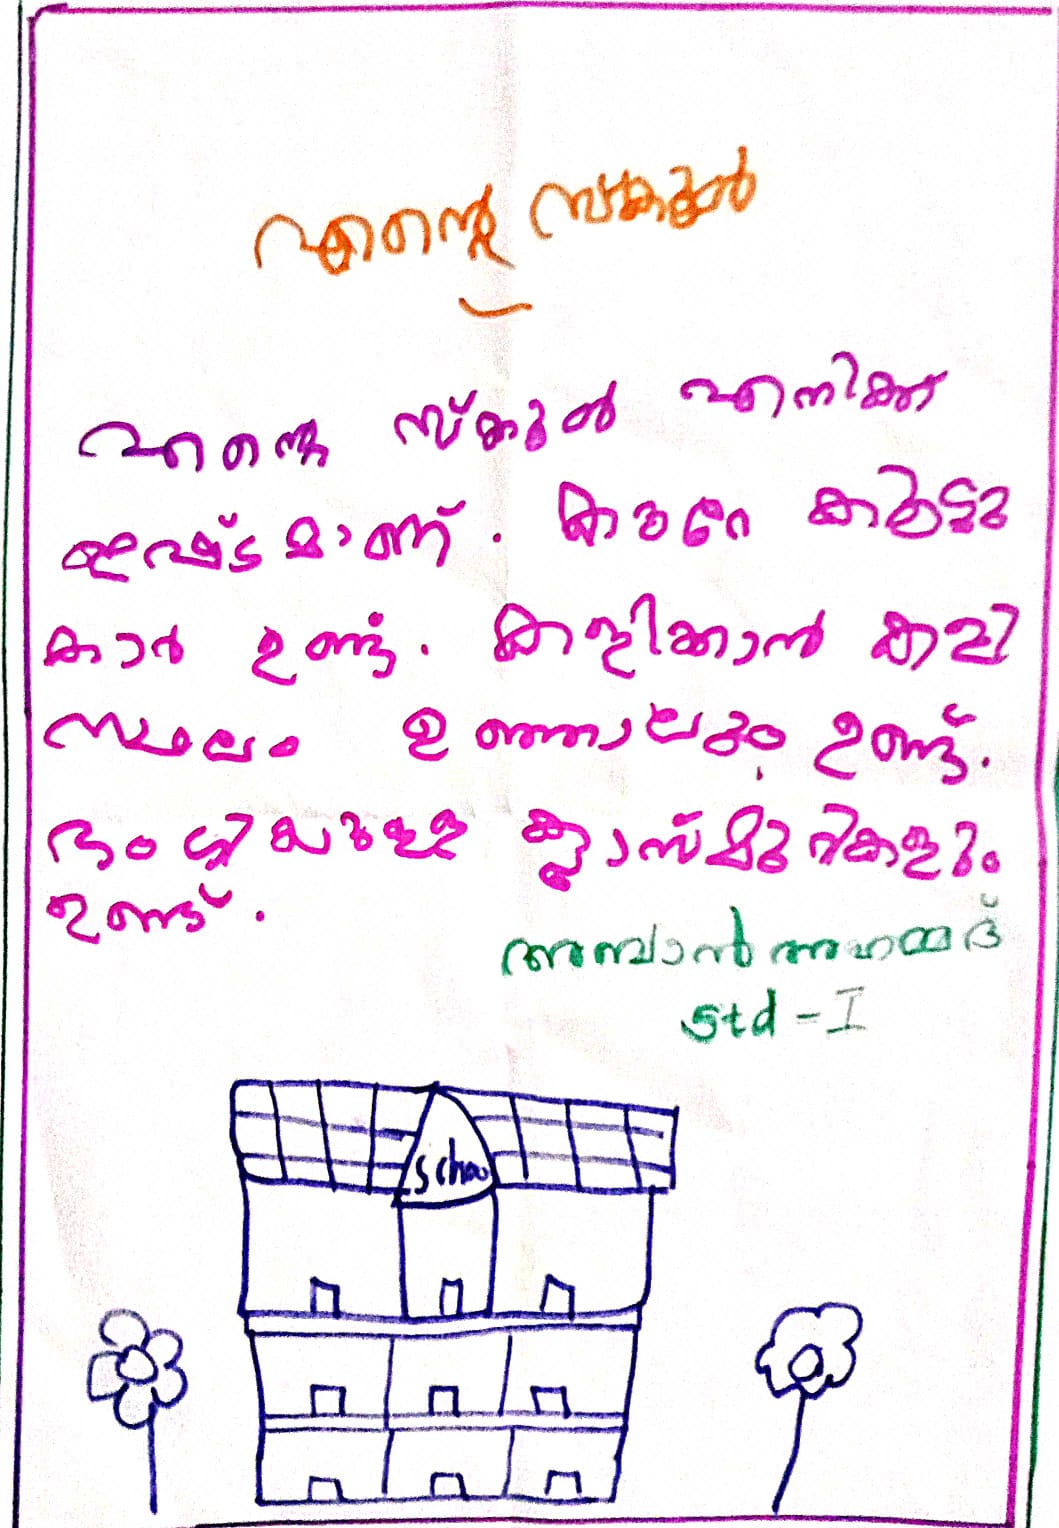 എന്റെ സ്കൂൾ
എന്റെ സ്കൂൾ എനിക്ക്
ഇഷ്ടമാണ്. കുറേ കൂട്ടു
കാർ ഉണ്ട്. കളിക്കാൻ കളി
സ്ഥലം ഉഞ്ഞാലും ഉണ്ട്.
ഭംഗിയുള്ള ക്ലാസ്മുറികളും
ഉണ്ട്.
അബാൻ അഹമ്മദ്
Std - I
Schoo